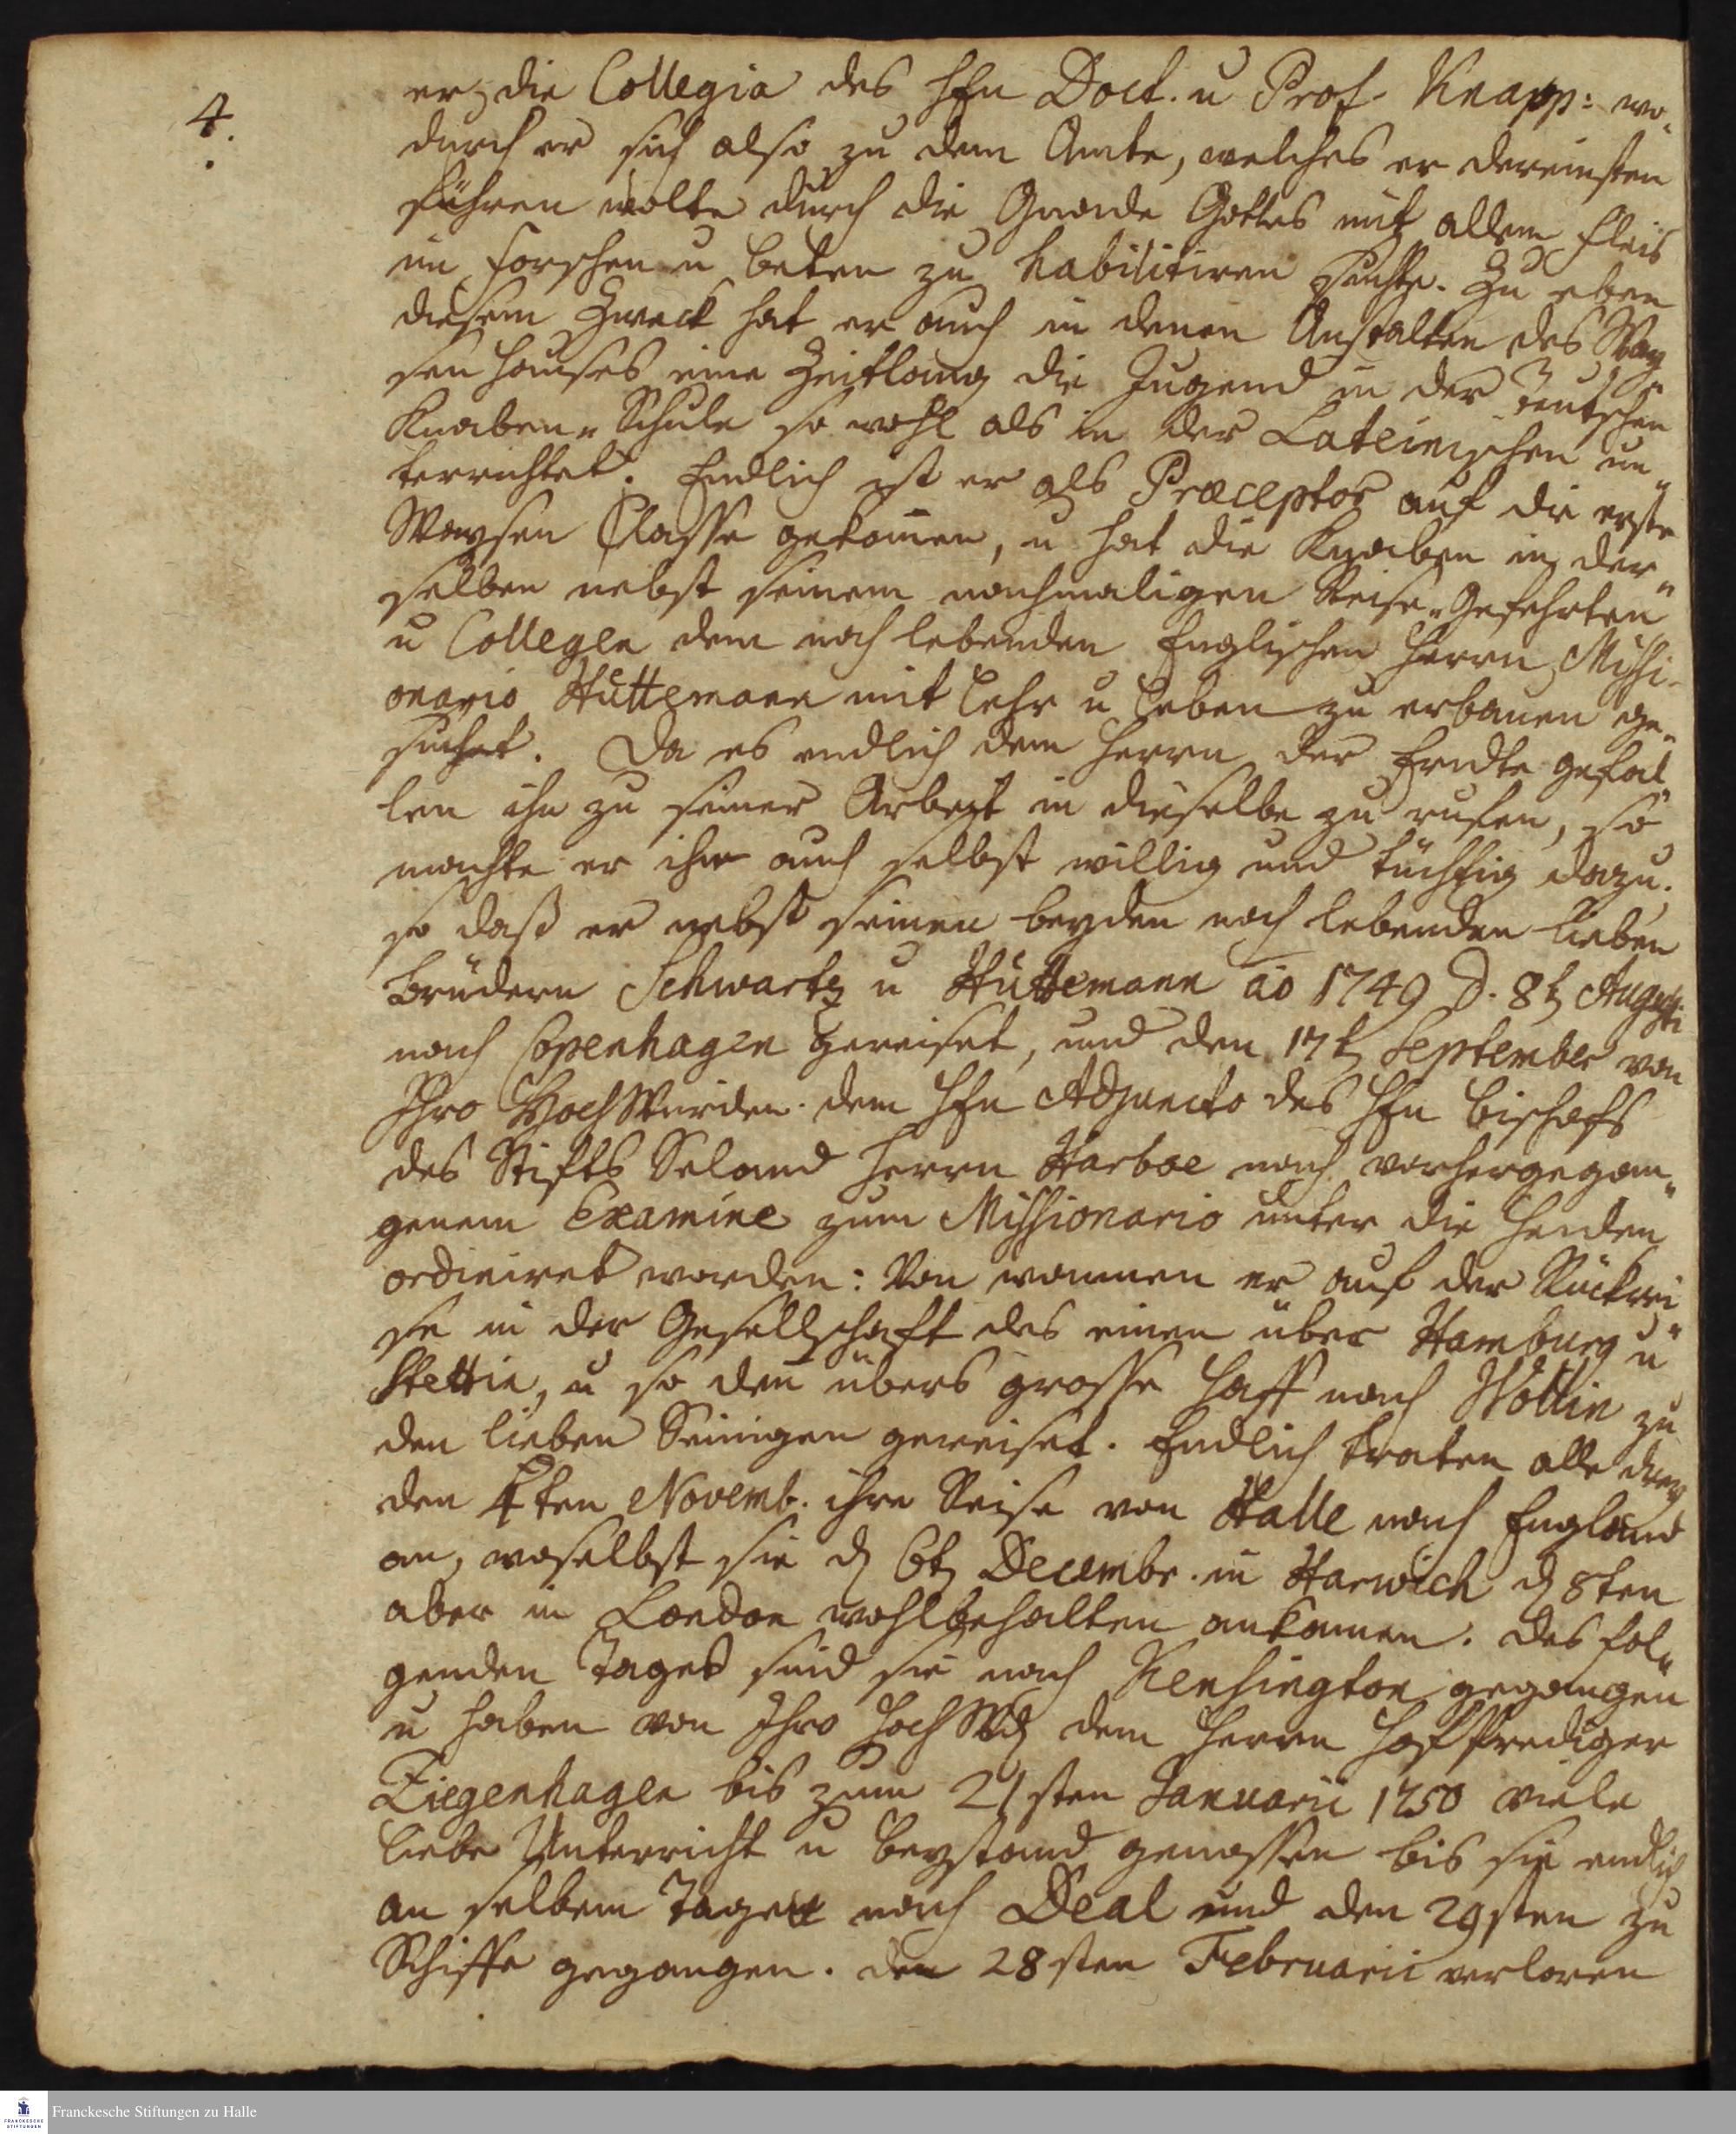 4.
er die Collegia des Hrn Doct. u Prof. Knapp: wo-
durch er sich also zu dem Amte, welches er dereinsten
führen wolte durch die Gnade Gottes mit allem Fleis
im Forschen u Beten zu habilitiren suchte. Zu eben
diesem Zweck hat er auch in denen Anstalten des Way
sen Hauses eine Zeitlang die Jugend in der Teutschen
Knaben-Schule so wohl als in der Lateinischen un-
terrichtet. Endlich ist er als Præceptor auf die erste
Waysen Classe gekom̄en, u hat die Knaben in der-
selben nebst seinem nachmaligen Reise-Gefehrten
u Collegen dem noch lebenden Englischen Herrn Missi-
onario Hüttemann mit Lehr u Leben zu erbauen ge-
suchet. Da es endlich dem Herrn der Erndte gefal-
len ihn zu seiner Arbeit in dieselbe zu rufen, so
machte er ihn auch selbst willig und tüchtig dazu.
so daß er nebst seinen beyden noch lebenden lieben
Brüdern Schwartz u Hüttemann ao 1749 d. 8t Augusti
nach Copenhagen gereiset, und den 17t September von
Ihro HochWürden dem Hrn Adjuncto des Hrn Bischofs
des Stifts Seland Herrn Harboe nach vorhergegan-
genem Examine zum Missionario unter die Heiden
ordiniret worden: Von wannen er auf der Rückrei-
se in der Gesellschaft des einen über Hamburg u
Stettin, u so den̄ übers grosse Haff nach Wollin zu
den lieben Seinigen gereiset. Endlich traten alle drey
den 4ten Novemb. ihre Reise von Halle nach England
an, woselbst sie d 6t Decembr. in Harwich d 8ten
aber in London wohlbehalten ankamen. Des fol-
genden Tages sind sie nach Kensington gegangen
u haben von Ihro HochWd dem Herrn Hofprediger
Ziegenhagen bis zum 21sten Januarii 1750 viele
Liebe Unterricht u Beystand genossen bis sie endlich
an selbem Tage nach Deal und den 29sten zu
Schiffe gegangen. den 28sten Februarii verloren
Franckesche Stiftungen zu Halle